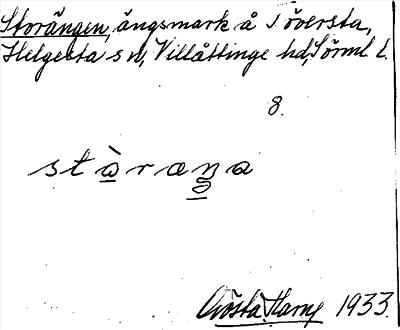 Storängen, ängsmark å Töversta,
Helgesta sn, Villåttinge hd, Sörml. l.
8.
stàraŋa
Harry 1933.